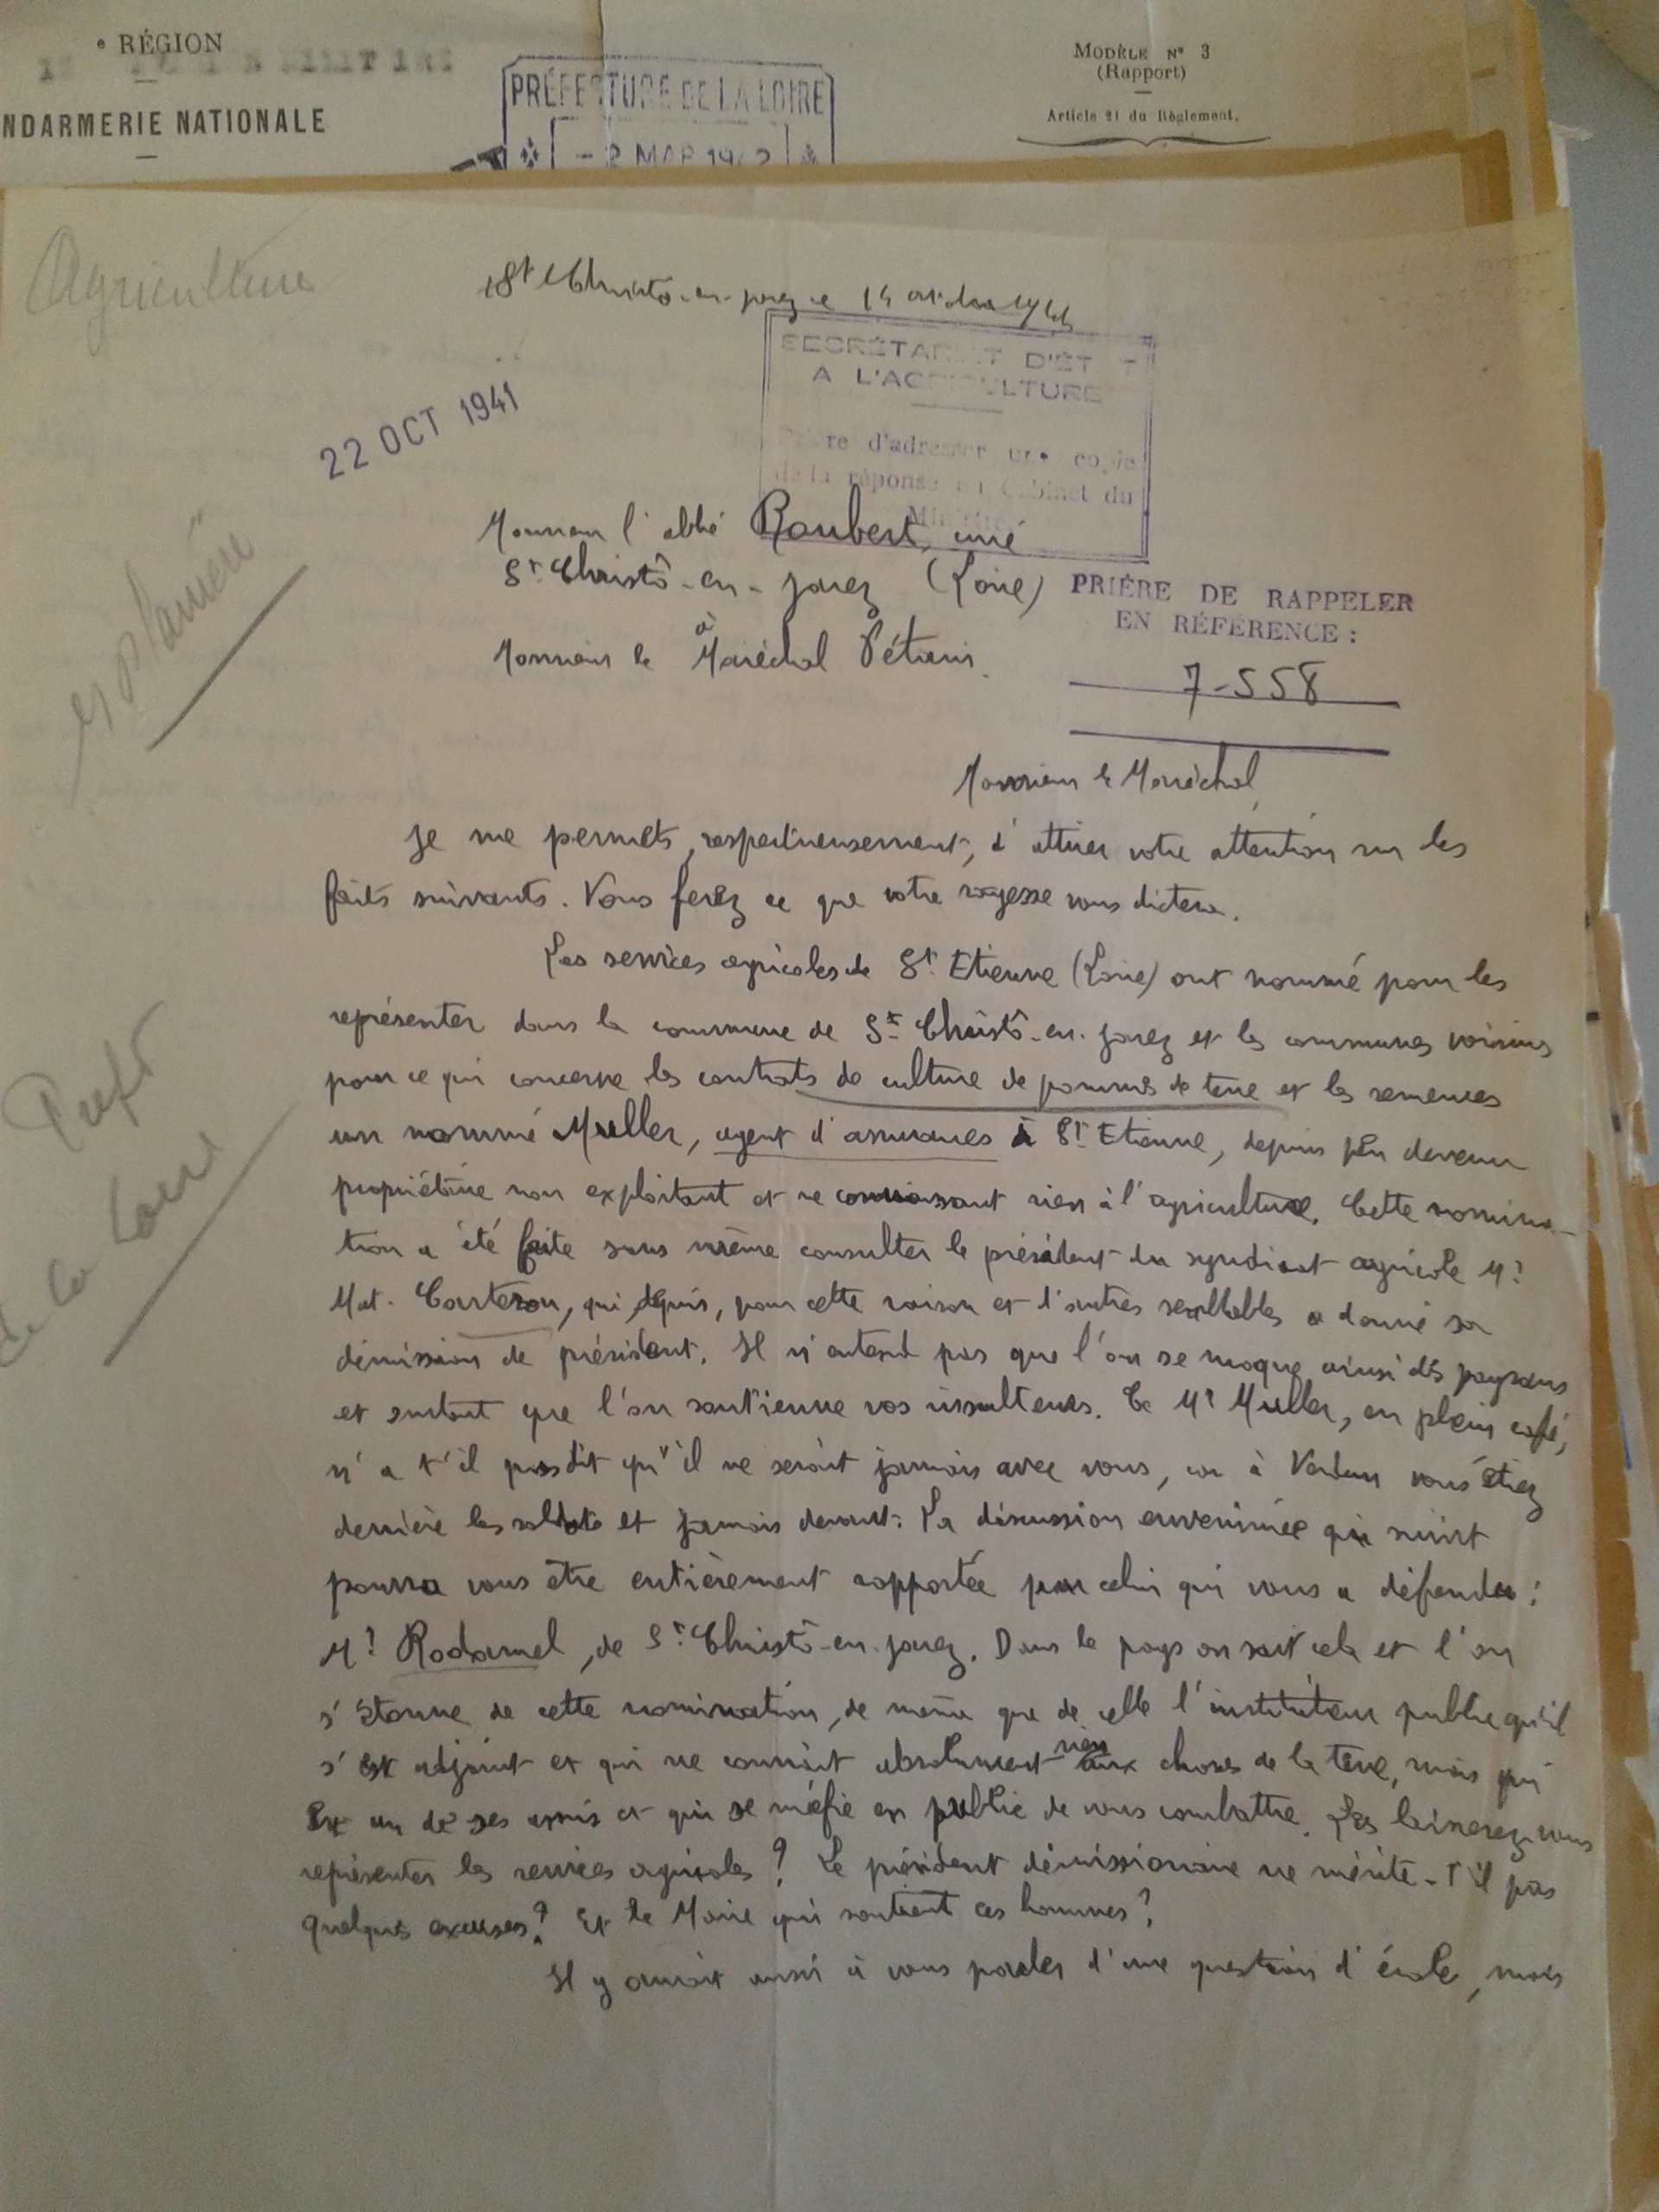 e RÉGION
NDARMERIE NATIONALE
PRÉFECTURE DE LA LOIRE
- 2 MAR 1942
MODÈLE N° 3
(Rapport)
Article 21 du Règlement.
Agriculture
St Christô-en-jarez le 1941
22 OCT 1941
SECRÉTARIAT D'ÉTAT
A L'AGRICULTURE
Prière d'adresser une copie
de la réponse au Cabinet du
Ministre
Monsieur l'abbé Roubert, curé
St Christô-en-jarez (Loire)
PRIÈRE DE RAPPELER
EN RÉFÉRENCE :
à
Monsieur le Maréchal Pétain.
7-558
Monsieur le Maréchal,
Je me permets, respectueusement, d'attirer votre attention sur les
faits suivants. Vous ferez ce que votre sagesse vous dictera.
Les services agricoles de St Etienne (Loire) ont nommé pour les
représenter dans la commune de St Christô-en-jarez et les communes voisines
pour ce qui concerne les contrats de culture de pommes de terre et les semences
un nommé Muller, agent d'assurances à St Etienne, depuis peu devenu
propriétaire non exploitant et ne connaissant rien à l'agriculture. Cette nomina-
tion a été faite sans même consulter le président du syndicat agricole Mr
Mat. Carteron, qui depuis, pour cette raison et d'autres semblables a donné sa
démission de président. Il n'entend pas que l'on se moque ainsi des paysans
et surtout que l'on soutienne vos insulteurs. Ce Mr Muller, en plein café,
n'a t'il pas dit qu'il ne serait jamais avec vous, car à Verdun vous étiez
derrière les soldats et jamais devant. La discussion envenimée qui suivit
pourra vous être entièrement rapportée par celui qui vous a défendu :
Mr Rodamel, de St Christô-en-jarez. Dans le pays on sait cela et l'on
s'étonne de cette nomination, de même que de celle l'instituteur public qu'il
s'est adjoint et qui ne connait absolument rien aux choses de la terre, mais qui
est un de ses amis et qui se méfie en public de vous combattre. Les laisserez-vous
représenter les services agricoles ? Le président démissionnaire ne mérite-t'il pas
quelques excuses ? Et le Maire qui soutient ces hommes ?
Il y aurait aussi à vous parler d'une question d'école, mais
Préfet
de la Loire